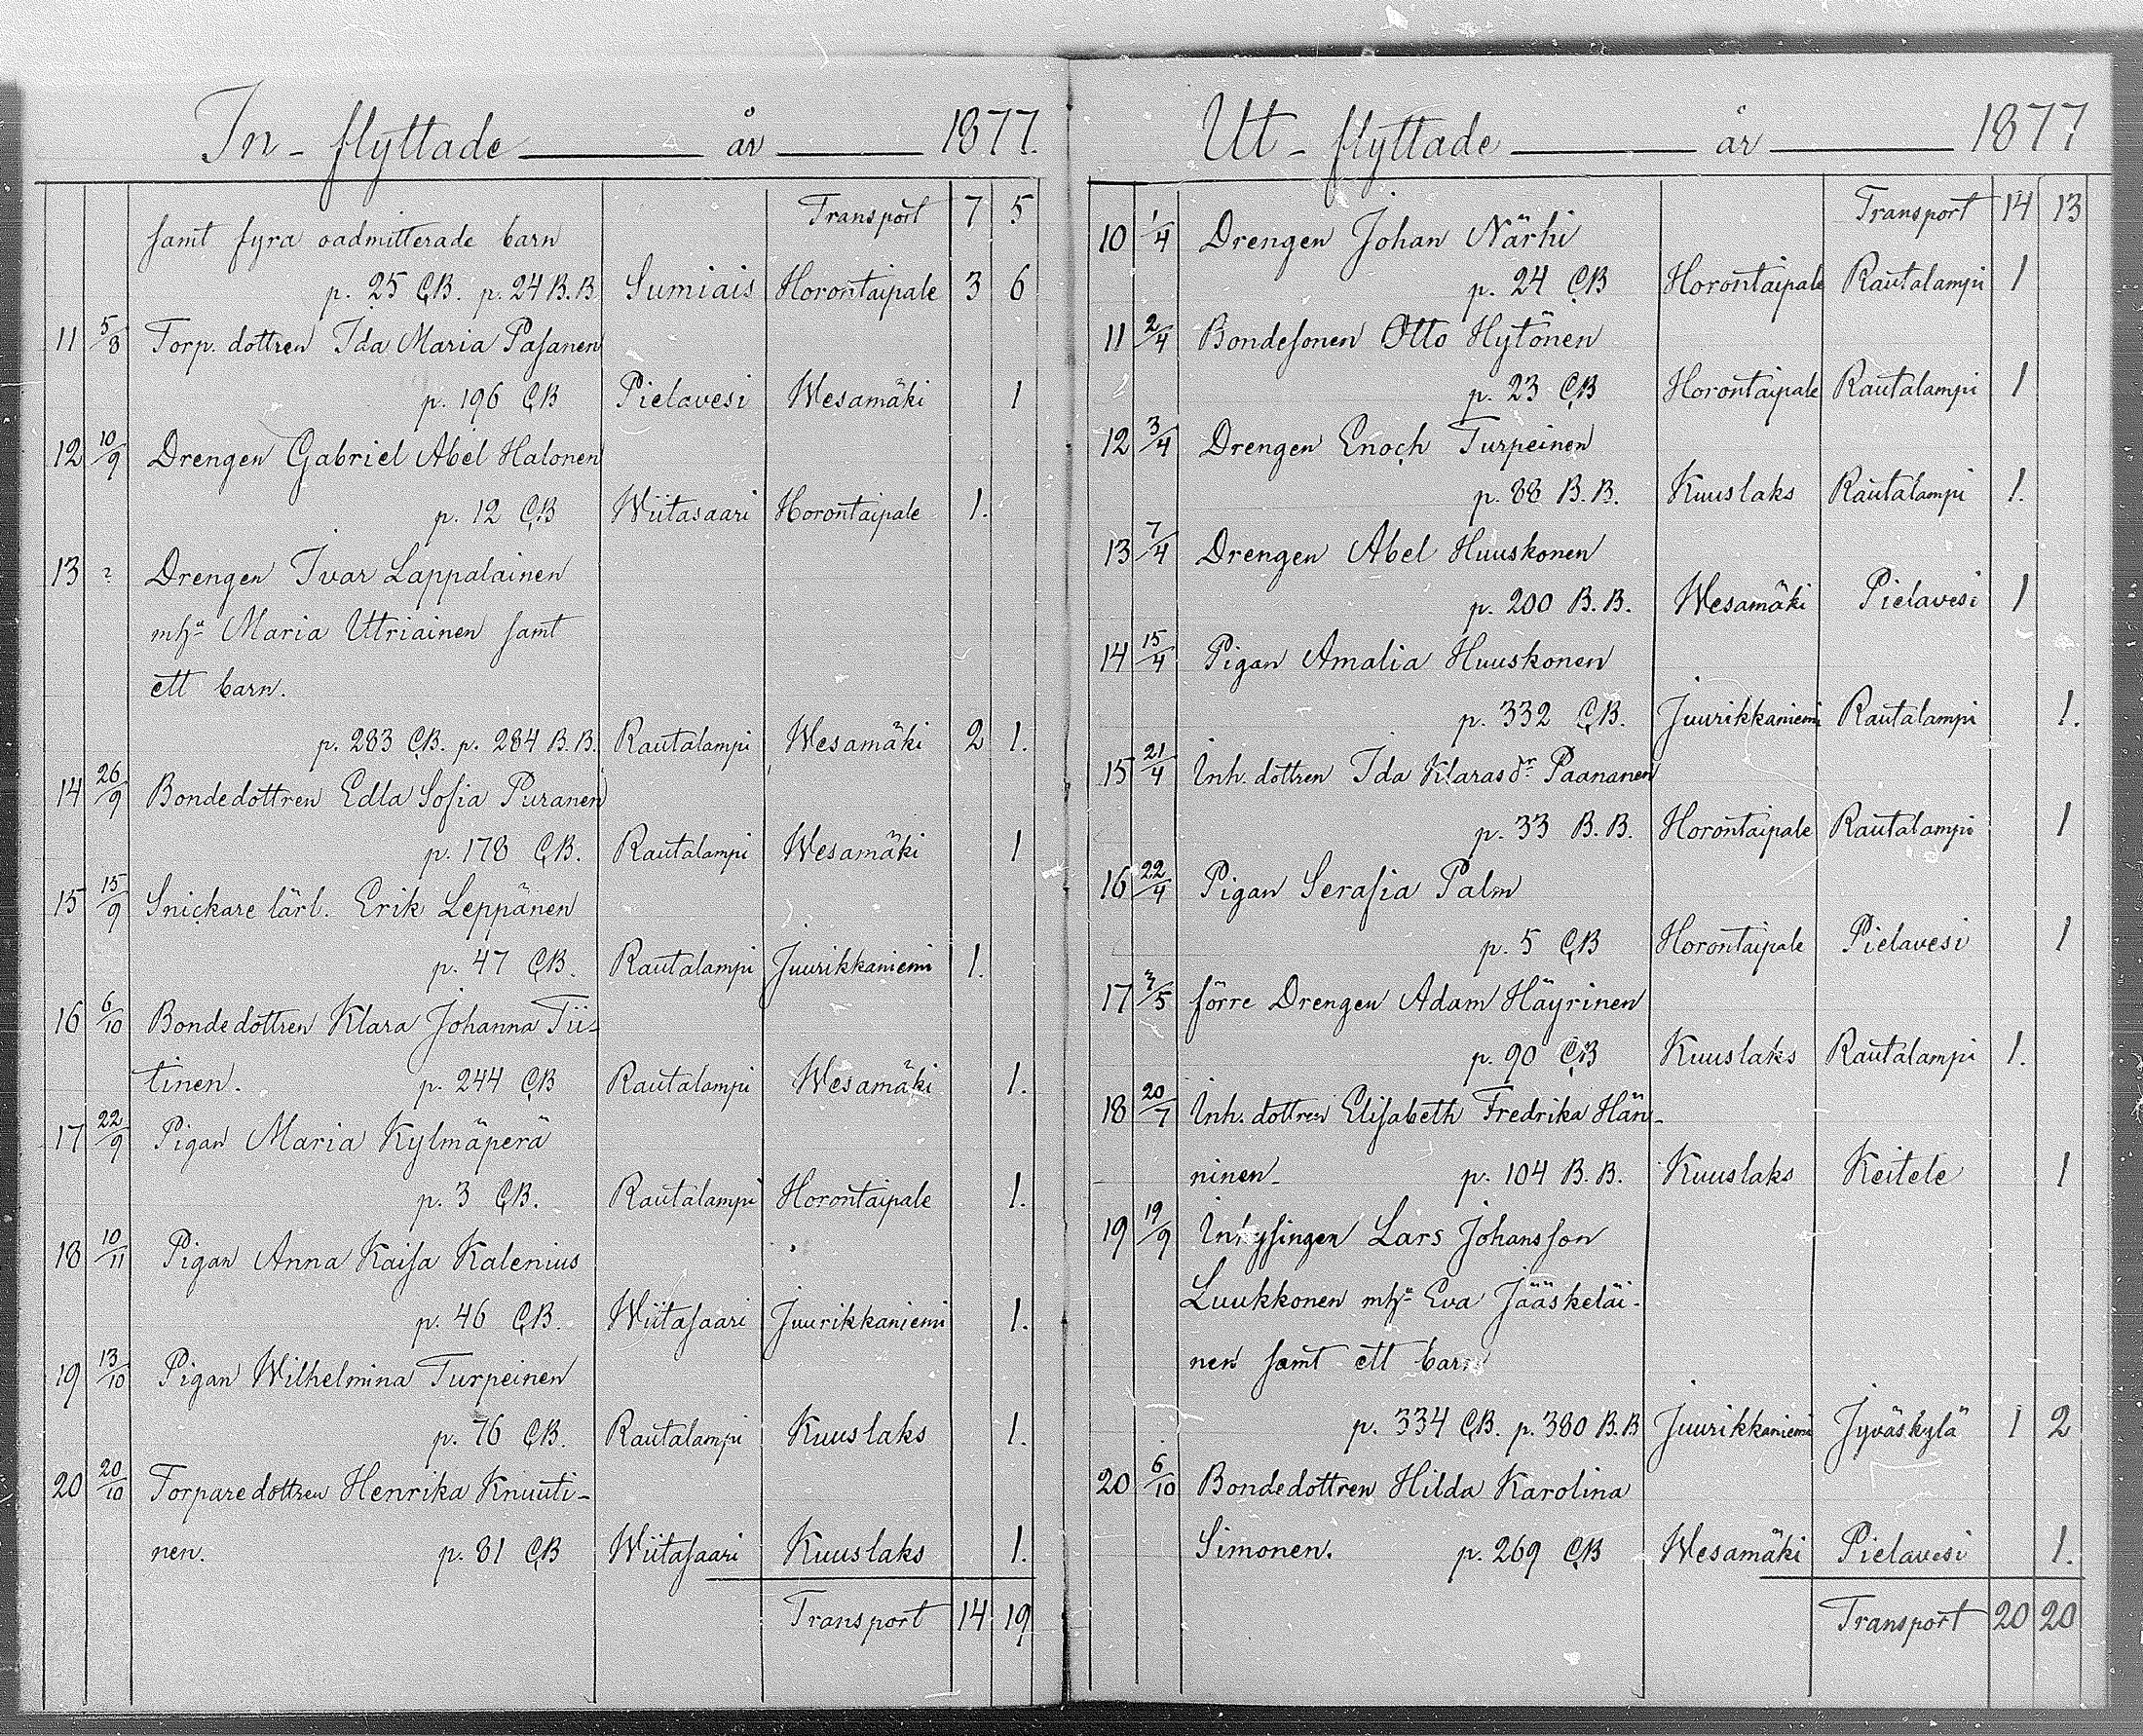 In-flyttade år 1877.
Transport 7 5
samt fyra oadmitterade barn
p. 25 C.B. p. 24 B.B. Sumiais Horontaipale 3 6
11 5/8 Torp. dottren Ida Maria Pasanen
p. 196 CB Pielavesi Wesamäki 1
12 10/9 Drengen Gabriel Abel Halonen
p. 12 CB Wiitasaari Horontaipale 1.
13 ? Drengen Ivar Lappalainen
mh:u Maria Utriainen samt
ett barn.
p. 283 CB. p. 284 B.B. Rautalampi Wesamäki 2 1.
14 26/9 Bondedottren Edla Sofia Puranen
p. 178 CB. Rautalampi Wesamäki 1
15 15/9 Snickare lärl. Erik Leppänen
p. 47 CB. Rautalampi Juurikkaniemi 1.
16 6/10 Bondedottren Klara Johanna Tii-
tinen. p. 244 CB Rautalampi Wesamäki 1.
17 22/9 Pigan Maria Kylmäperä
p. 3 CB. Rautalampi Horontaipale 1.
18 10/11 Pigan Anna Kaisa Kalenius
p. 46 CB. Wiitasaari Juurikkaniemi 1.
19 13/10 Pigan Wilhelmina Turpeinen
p. 76 CB. Rautalampi Kuuslaks 1.
20 20/10 Torparedottren Henrika Knuuti-
nen. p. 81 CB Wiitasaari Kuuslaks 1.
Transport 14 19
Ut-flyttade år 1877
Transport 14 13
10 1/4 Drengen Johan Närhi
p. 24 CB Horontaipale Rautalampi 1
11 2/4 Bondesonen Otto Hytönen
p. 23 CB Horontaipale Rautalampi 1
12 3/4 Drengen Enoch Turpeinen
p. 88 B.B. Kuuslaks Rautalampi 1.
13 7/4 Drengen Abel Huuskonen
p. 200 B.B. Wesamäki Pielavesi 1
14 15/4 Pigan Amalia Huuskonen
p. 332 CB. Juurikkaniemi Rautalampi 1.
15 21/4 Inh. dottren Ida Klarasdr Paananen
p. 33 B.B. Horontaipale Rautalampi 1
16 22/4 Pigan Serafia Palm
p. 5 CB Horontaipale Pielavesi 1
17 7/5 förre Drengen Adam Häyrinen
p. 90 CB Kuuslaks Rautalampi 1.
18 20/7 Inh. dottren Elisabeth Fredrika Hän-
ninen p. 104 B.B. Kuuslaks Keitele 1
19 19/9 Inhysingen Lars Johansson
Luukkonen mh:u Eva Jääskeläi-
nen samt ett barn
p. 334 CB. p. 380 B.B Juurikkaniemi Jyväskylä 1 2
20 6/10 Bondedottren Hilda Karolina
Simonen. p. 269 CB Wesamäki Pielavesi 1.
Transport 20 20